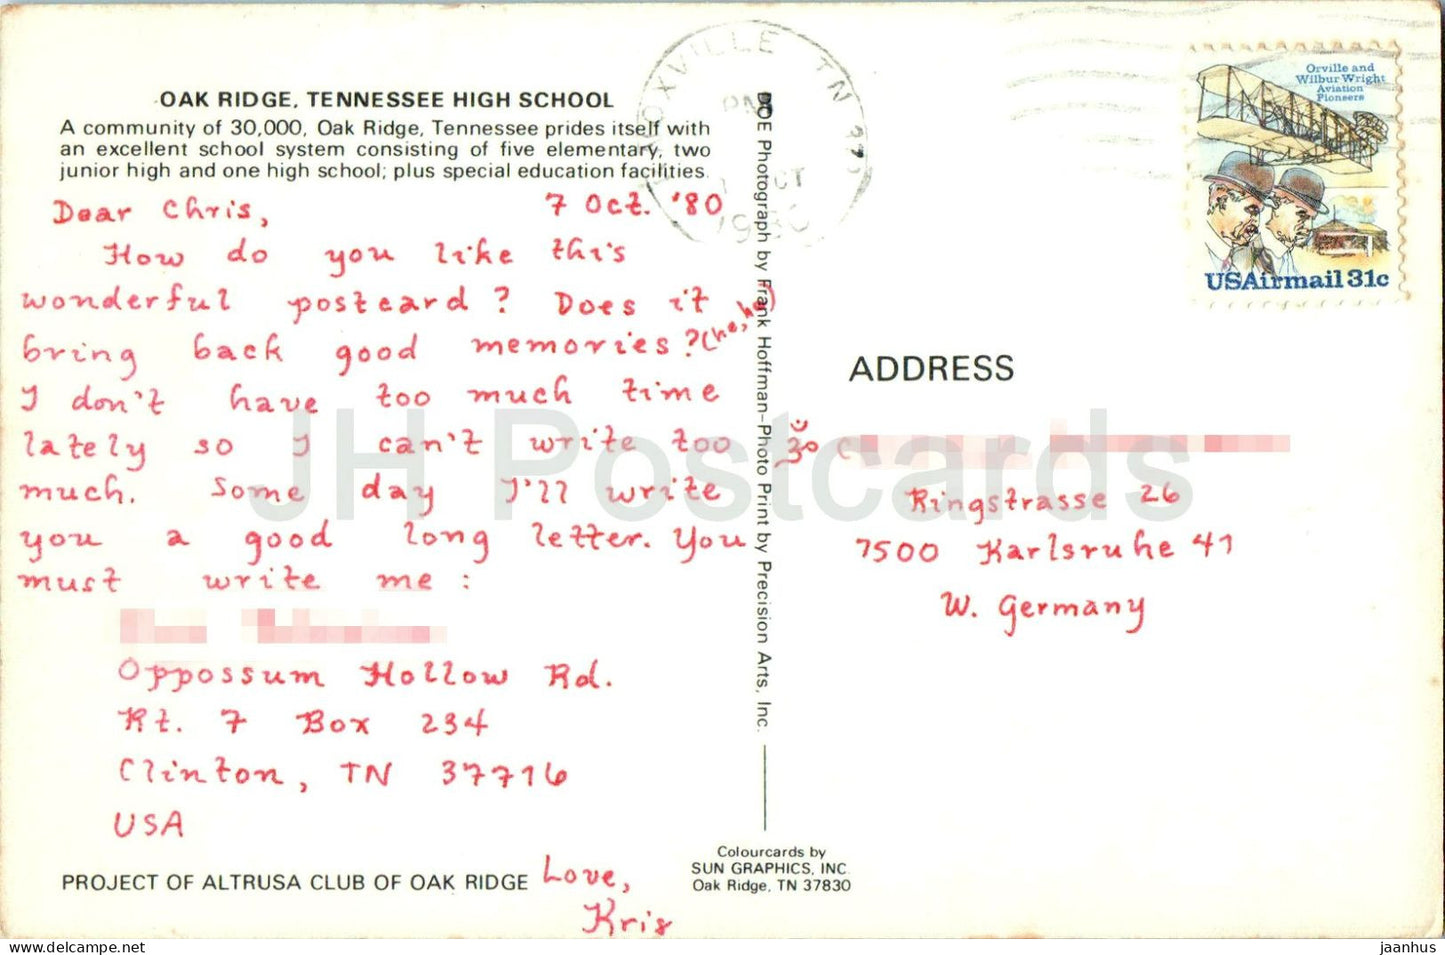 OAK RIDGE, TENNESSEE HIGH SCHOOL
A community of 30,000, Oak Ridge, Tennessee prides itself with
an excellent school system consisting of five elementary, two
junior high and one high school; plus special education facilities.
Dear Chris, 7 Oct. '80
How do you like this
wonderful postcard? Does it
bring back good memories? (he, he)
I don't have too much time
lately so I can't write too
much. Some day I'll write
you a good long letter. You
must write me:
Oppossum Hollow Rd.
Rt. 7 Box 234
Clinton, TN 37716
USA
Love,
Kris
PROJECT OF ALTRUSA CLUB OF OAK RIDGE
DOE Photograph by Frank Hoffman-Photo Print by Precision Arts, Inc.
Colourcards by
SUN GRAPHICS, INC.
Oak Ridge, TN 37830
KNOXVILLE TN
PM
OCT
1980
Orville and
Wilbur Wright
Aviation
Pioneers
USAirmail 31c
ADDRESS
ॐ C
Ringstrasse 26
7500 Karlsruhe 41
W. Germany
JH Postcards
jaanhus